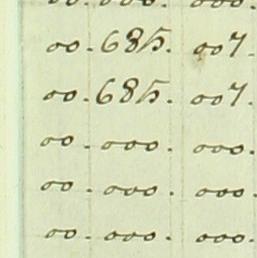 00.000.000.
00.685.007.
00.685.007.
00.000.000.
00.000.000.
00.000.000.